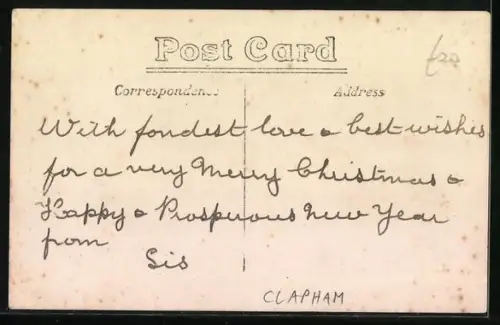 Post Card
£20
Correspondence
Address
With fondest love & best wishes
for a very Merry Christmas &
Happy & Prosperous New Year
from
Sis
CLAPHAM